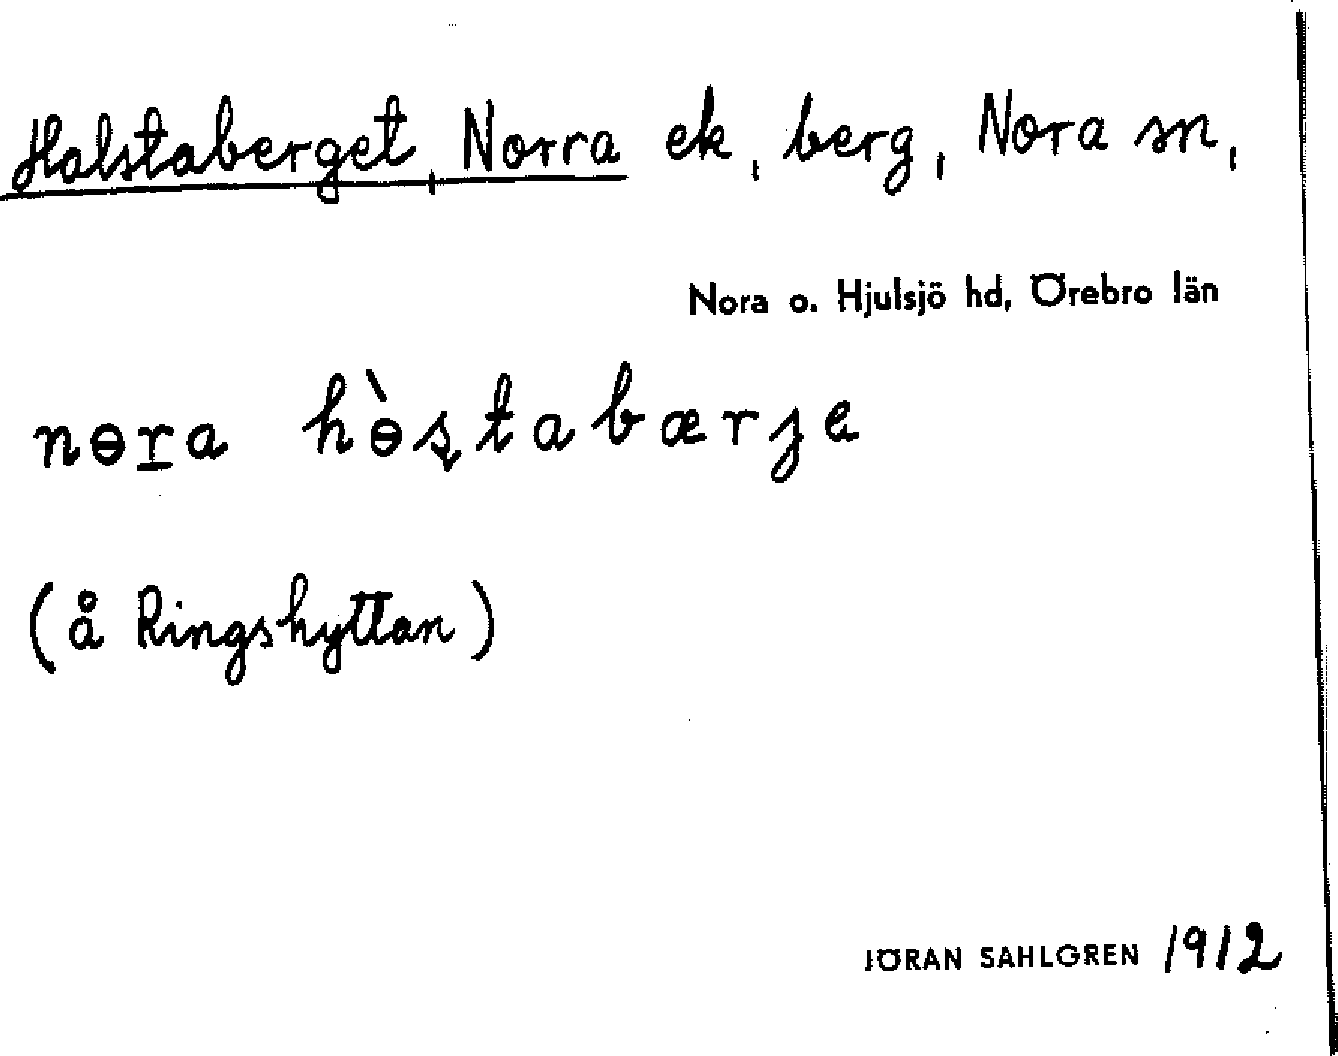 Holstaberget, Norra ek, berg, Nora sn,
Nora o. Hjulsjö hd, Örebro län
nɵr̲a hɵ̀s̡tabærʒe
(å Ringshyttan)
JÖRAN SAHLGREN 1912